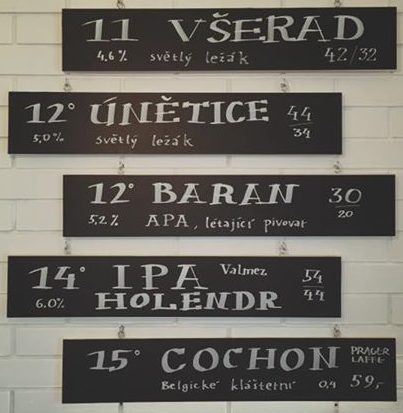 11 VŠERAD
4,6% světlý ležák 42/32
12° ÚNĚTICE 44/34
5,0% světlý ležák
12° BARAN 30/20
5,2% APA, létající pivovar
14° IPA Valmez 54/44
6.0% HOLENDR
15° COCHON PRAGER LAFFE
Belgické klášterní 0,4 59,-